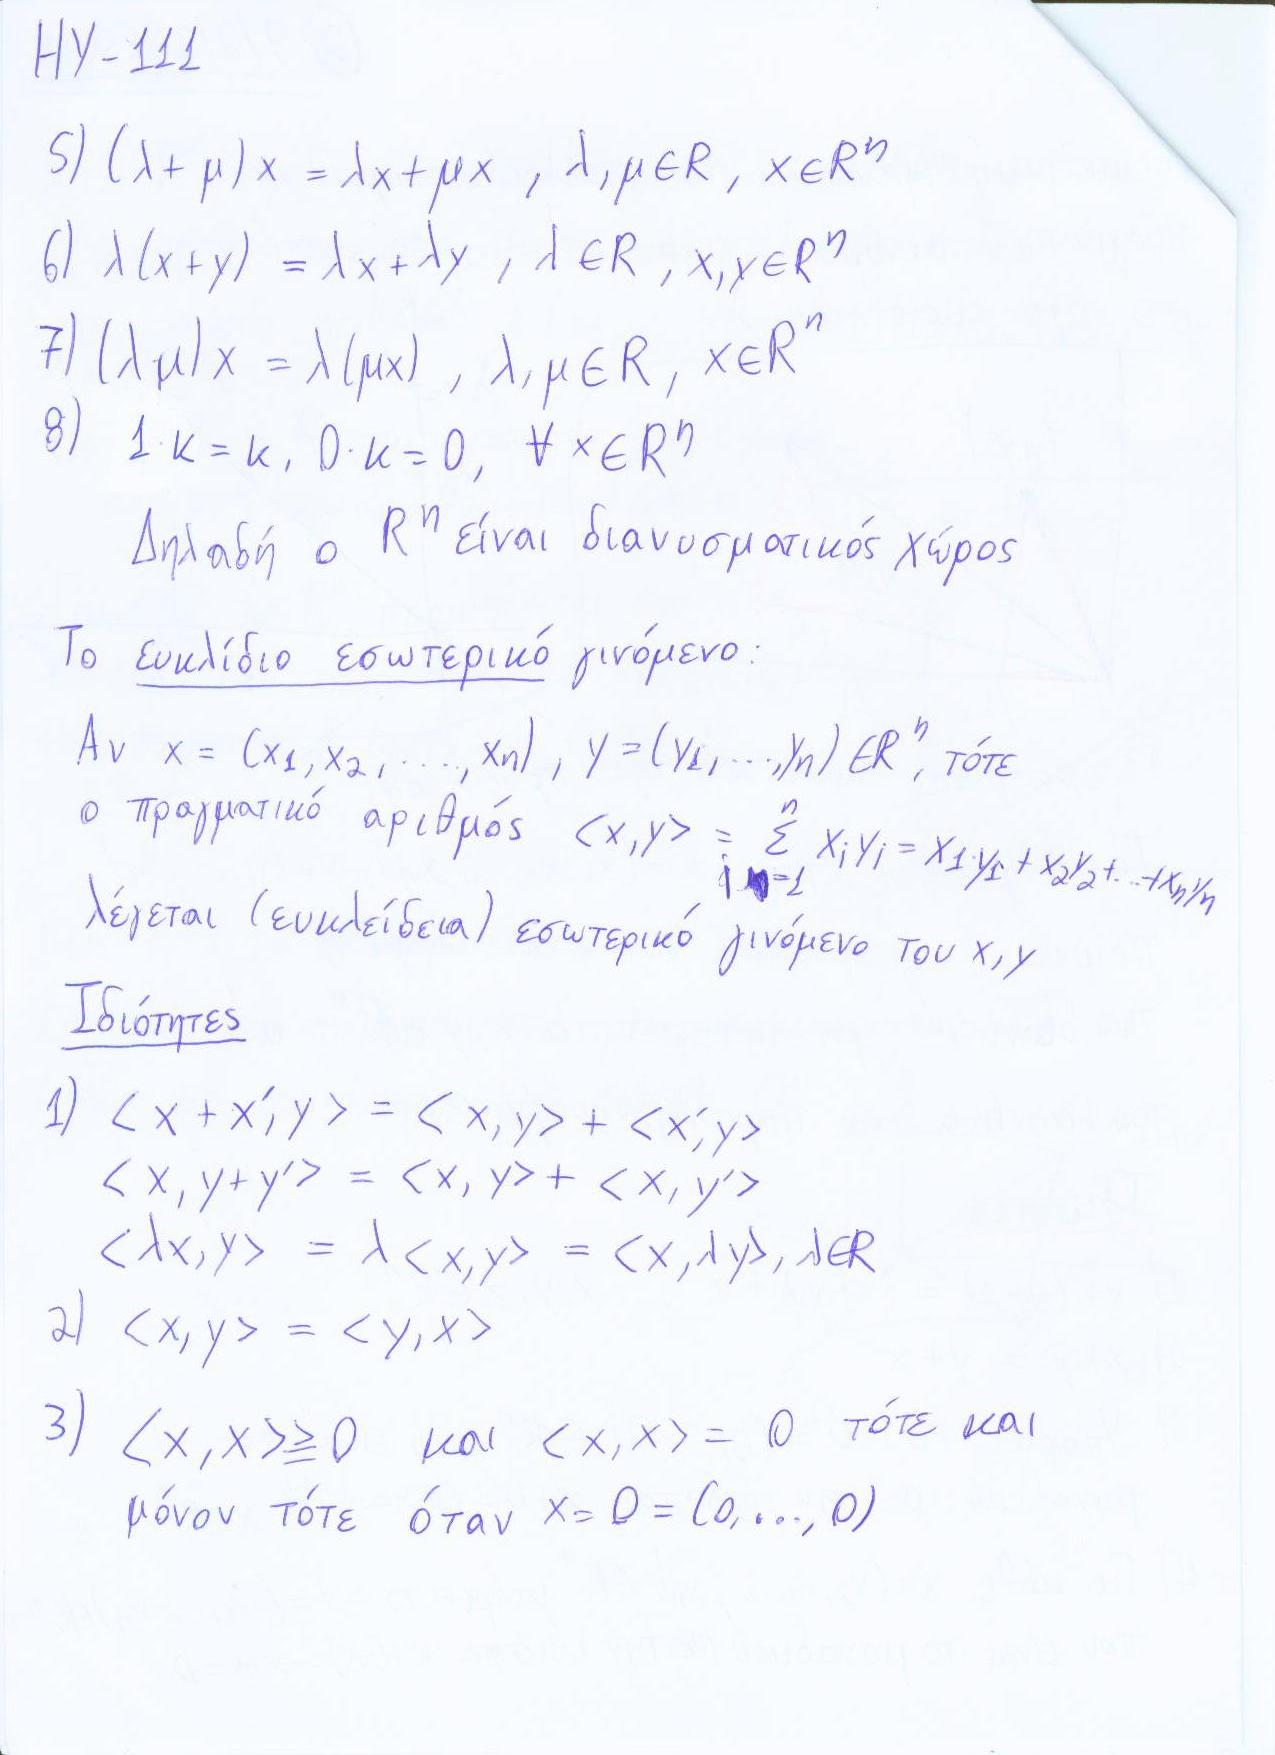 ΗΥ-111
5) (λ+μ)x = λx+μx , λ,μ∈R , x∈Rⁿ
6) λ(x+y) = λx+λy , λ∈R , x,y∈Rⁿ
7) (λμ)x = λ(μx) , λ,μ∈R , x∈Rⁿ
8) 1·κ=κ, 0·κ=0, ∀ x∈Rⁿ
Δηλαδή ο Rⁿ είναι διανυσματικός χώρος
Το ευκλίδιο εσωτερικό γινόμενο:
Αν x = (x₁,x₂,....,xₙ) , y=(y₁,...,yₙ)∈Rⁿ, τότε
ο πραγματικό αριθμός <x,y> = Σⁿᵢ₌₁ xᵢyᵢ = x₁·y₁+x₂y₂+...+xₙyₙ
λέγεται (ευκλείδεια) εσωτερικό γινόμενο του x,y
Ιδιότητες
1) <x+x',y> = <x,y> + <x',y>
<x,y+y'> = <x,y> + <x,y'>
<λx,y> = λ<x,y> = <x,λy>, λ∈R
2) <x,y> = <y,x>
3) <x,x>≧0 και <x,x>=0 τότε και
μόνον τότε όταν x=0=(0,...,0)